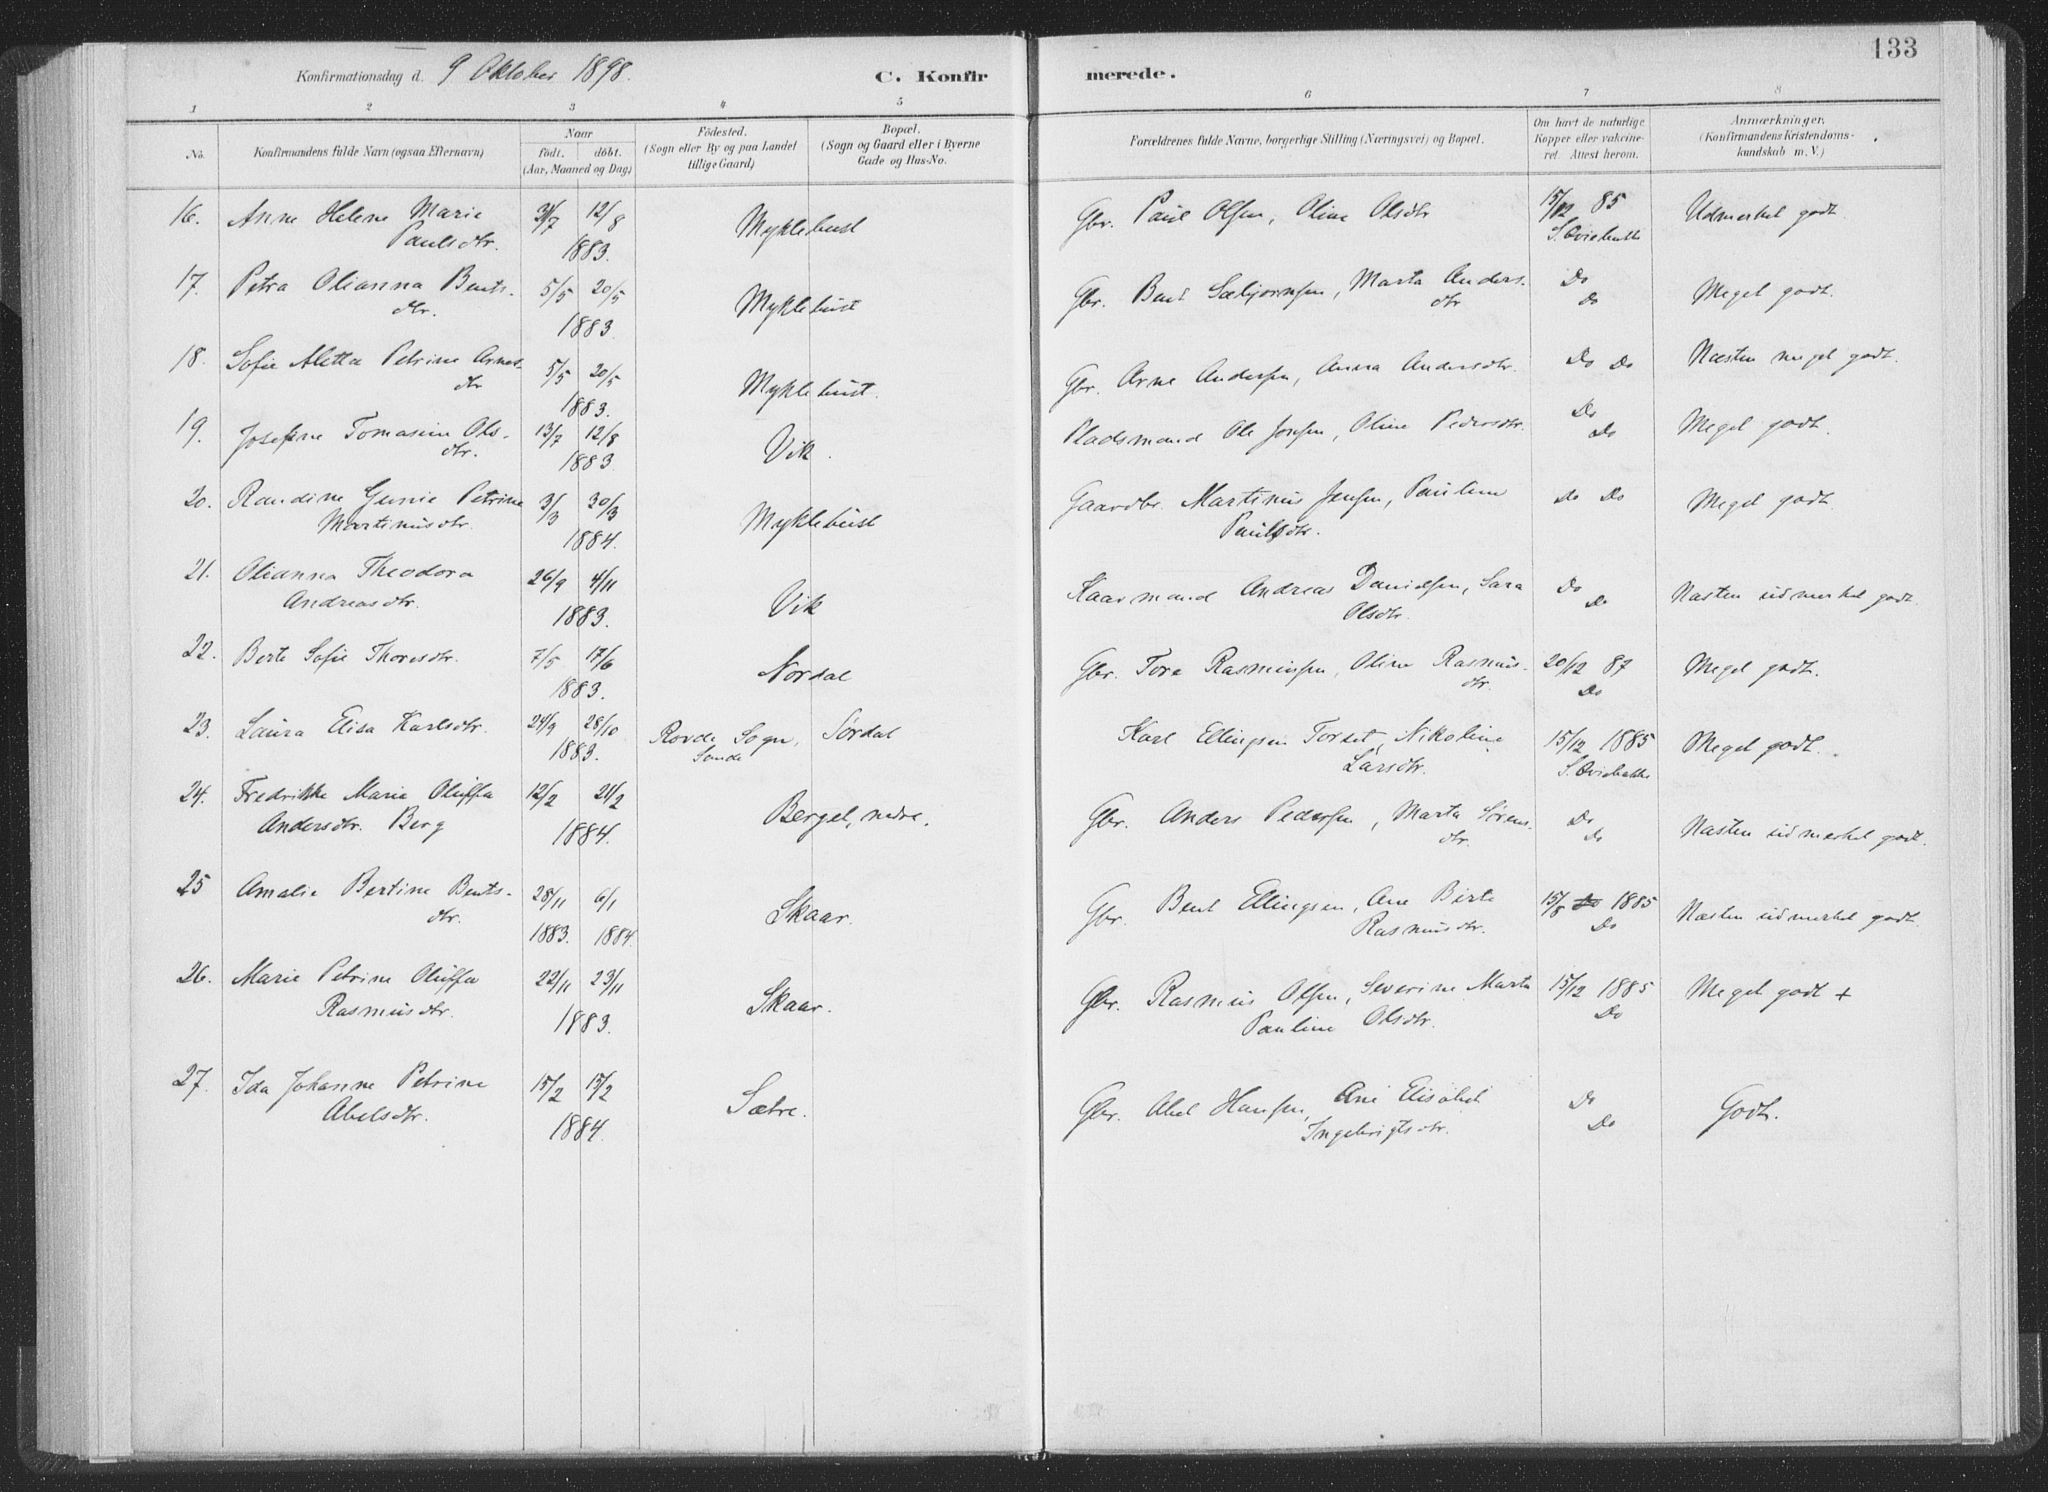 133
Konfirmationsdag d. 9 Oktober 1898.
C. Konfir merede.
1 2 3 4 5 6 7 8
No.
Konfirmandens fulde Navn (ogsaa Efternavn)
Naar
födt. döbt.
(Aar, Maaned og Dag)
Födested.
(Sogn eller By og paa Landet
tillige Gaard)
Bopæl.
(Sogn og Gaard eller i Byerne
Gade og Hus-No.
Forældrenes fulde Navne, borgerlige Stilling (Næringsvei) og Bopæl.
Om havt de naturlige
Kopper eller vakcine-
ret. Attest herom.
Anmærkninger.
(Konfirmandens Kristendoms-
kundskab m. V.)
16. Anne Helene Marie 31/7 12/8 Myklebust Gbr. Paul Olsen, Oline Olsdtr 15/12 85 Udmerket godt.
Paulsdtr. 1883.
17. Petra Olianna Bents- 5/5 20/5 Myklebust Gbr. Bent Sæbjørnsen, Marta Anders- Do Meget godt.
dtr. 1883. dtr Do
18. Sofie Aletta Petrine Arnes- 5/5 20/5 Myklebust. Gbr. Arne Andersen, Anna Andersdtr. Do Do Næsten meget godt.
dtr 1883.
19. Josefine Tomasine Ols- 13/7 12/8 Vik. Pladsmand Ole Jonsen, Oline Pedersdtr. Do Meget godt.
dtr. 1883. Do
20. Randine Gunie Petrine 3/3 30/3 Myklebust Gaardbr. Martinus Jensen, Pauline Do Do Meget godt.
Martinusdtr. 1884. Paulsdtr.
21. Olianna Theodora 26/9 4/11 Vik Kaarmand Andreas Danielsen, Sara Do Næsten udmerket godt.
Andreasdtr. 1883. Olsdtr. Do
22. Berte Sofie Thoresdtr. 7/5 17/6 Nordal Gbr. Tore Rasmussen, Oline Rasmus- 20/12 87 Meget godt.
1883. dtr. Do
23. Laura Elisa Karlsdtr. 24/9 28/10 Rovde Sogn, Sørdal Karl Ellingsen Torset, Nikoline 15/12 1885 Meget godt.
1883. Sande Larsdtr.
24. Fredrikke Marie Oluffa 12/2 24/2 Berget, nedre. Gbr. Anders Pedersen, Marta Sørens- Do Næsten udmerket godt.
Andersdtr. Berg 1884. dtr. Do
25 Amalie Bertine Bents- 28/11 6/1 Skaar. Gbr. Bent Ellingsen, Ane Birte 15/8 Do 1885 Næsten udmerket godt.
dtr. 1883. 1884. Rasmusdtr. Do
26. Marie Petrine Oluffa 22/11 23/11 Skaar. Gbr. Rasmus Olsen, Severine Marta 15/12 1885 Meget godt +
Rasmusdtr. 1883. Pauline Olsdtr. Do
27. Ida Johanne Petrine 15/2 15/2 Sætre. Gbr. Abel Hansen, Ane Elisabet Do Godt.
Abelsdtr. 1884. Ingebrigtsdtr. Do